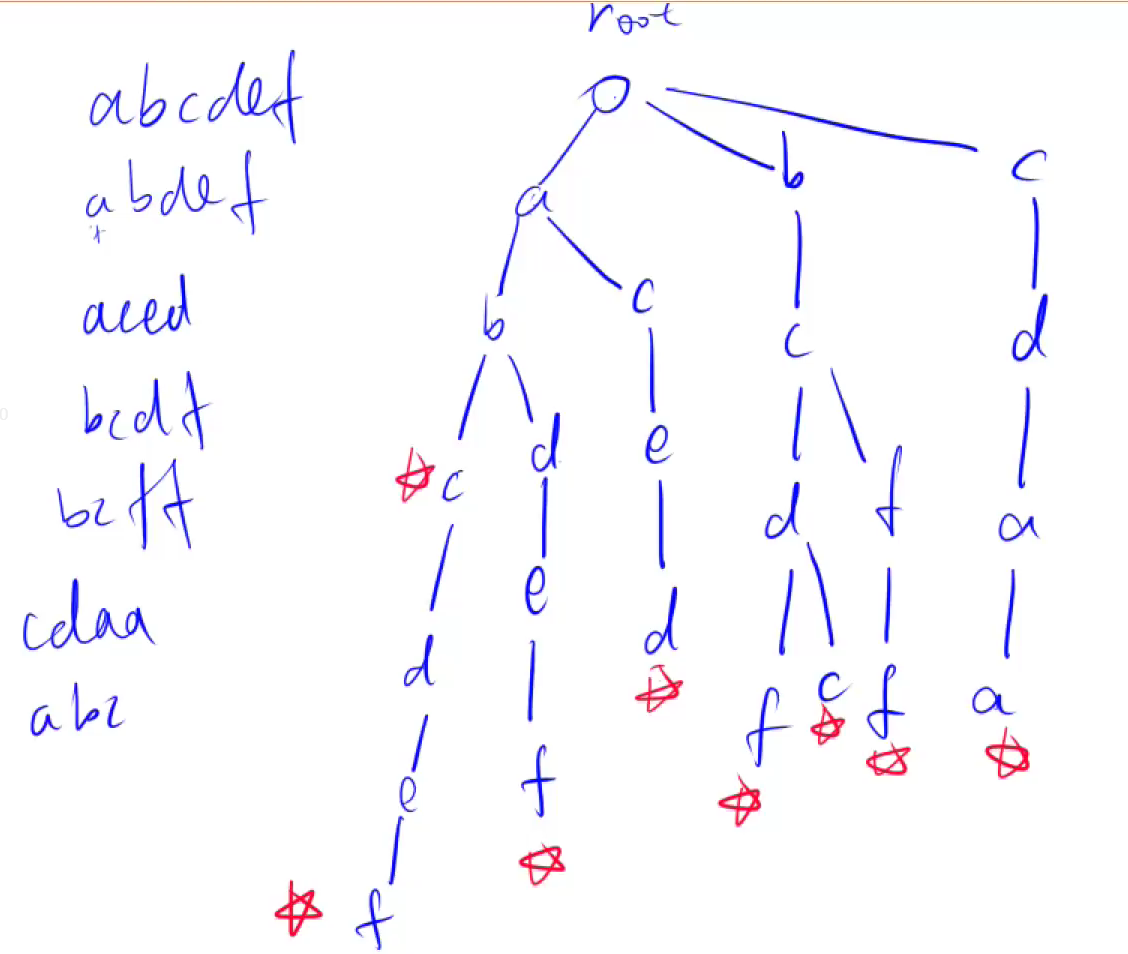 root
abcdef
abdef
aced
bcdf
bcff
cdaa
abc
a b c
b c c
c d e d f d
d e d f c f a
e f a
f